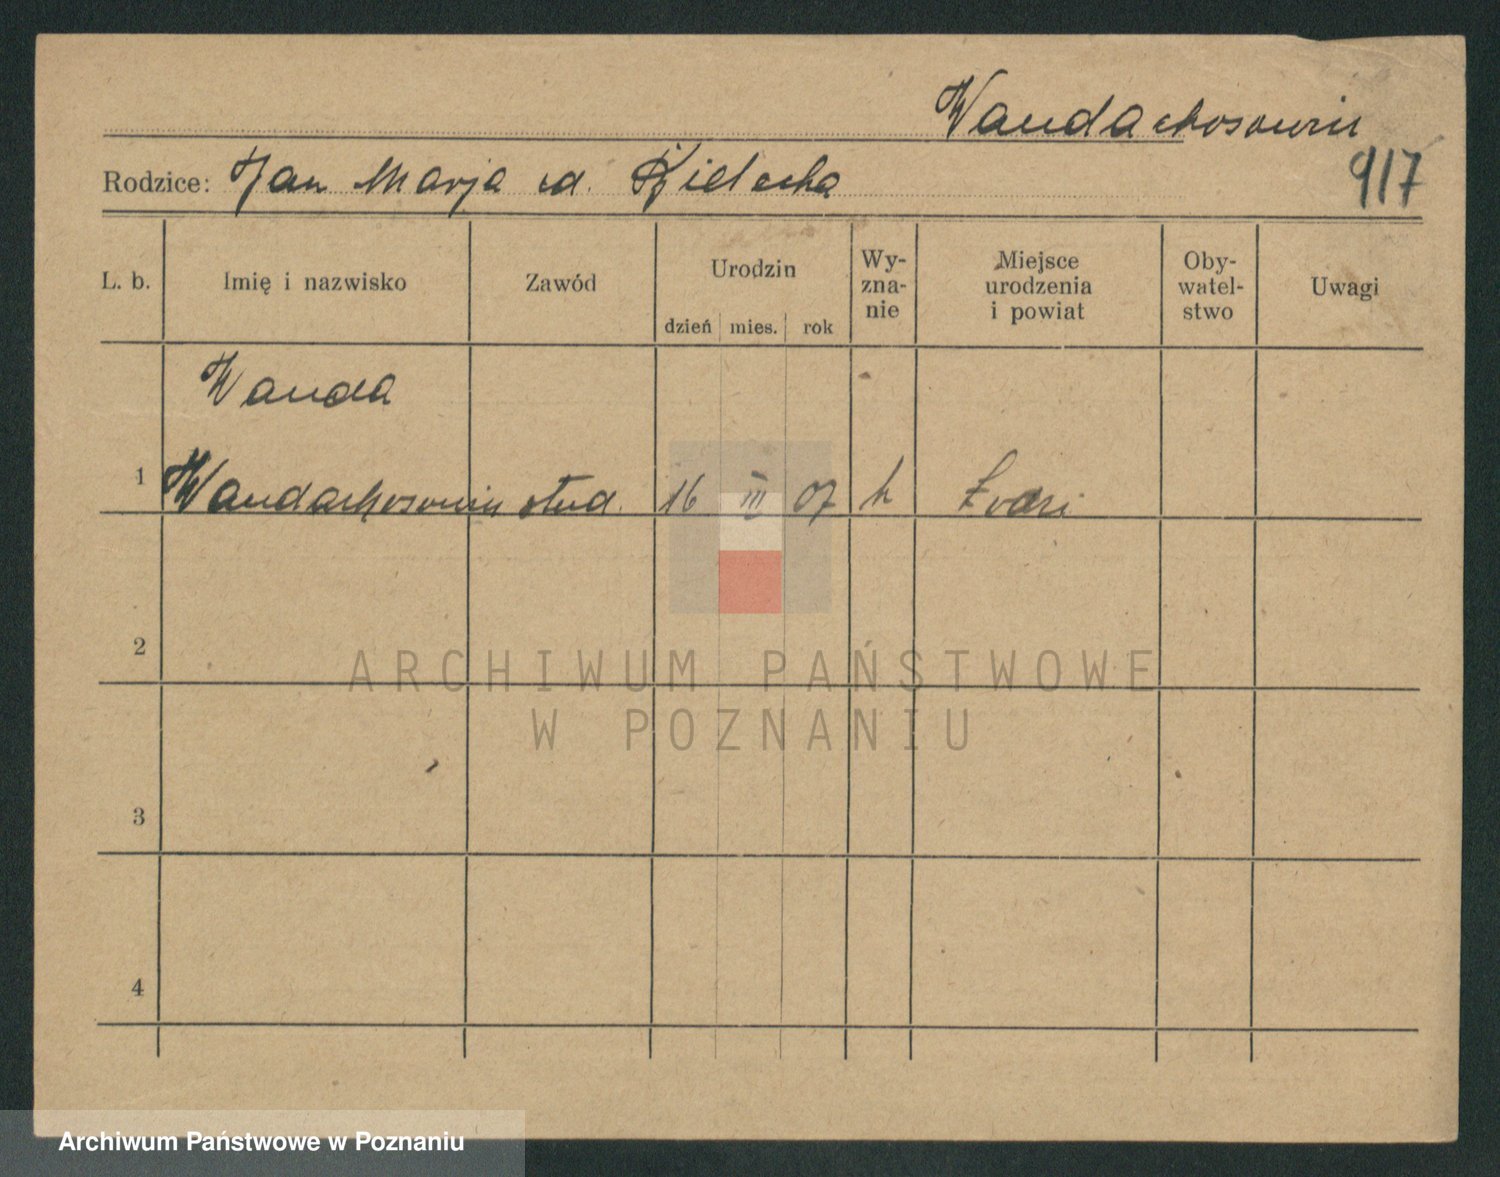 Wandachosowin
917
Rodzice: Jan Marja
L. b.
Imię i nazwisko
Zawód
Urodzin
dzień mies. rok
Wy-
zna-
nie
Miejsce
urodzenia
i powiat
Oby-
watel-
stwo
Uwagi
Wanda
1 Wandachosowin stud. 16 III 07
2
3
4
ARCHIWUM PAŃSTWOWE
W POZNANIU
Archiwum Państwowe w Poznaniu